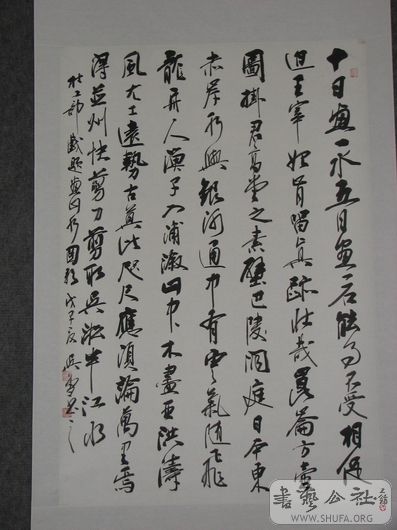 十日畫一水五日畫一石能事不受相促
迫王宰始肯留真跡壯哉崑崙方壺
圖掛君高堂之素壁巴陵洞庭日本東
赤岸水與銀河通中有雲氣隨飛
龍舟人漁子入浦漵山中木盡亞洪濤
風尤工遠勢古莫比咫尺應須論萬里焉
得並州快剪刀剪取吳淞半江水
杜工部戲題畫山水圖歌戊子夏吳書之
書藝公社
WWW.SHUFA.ORG